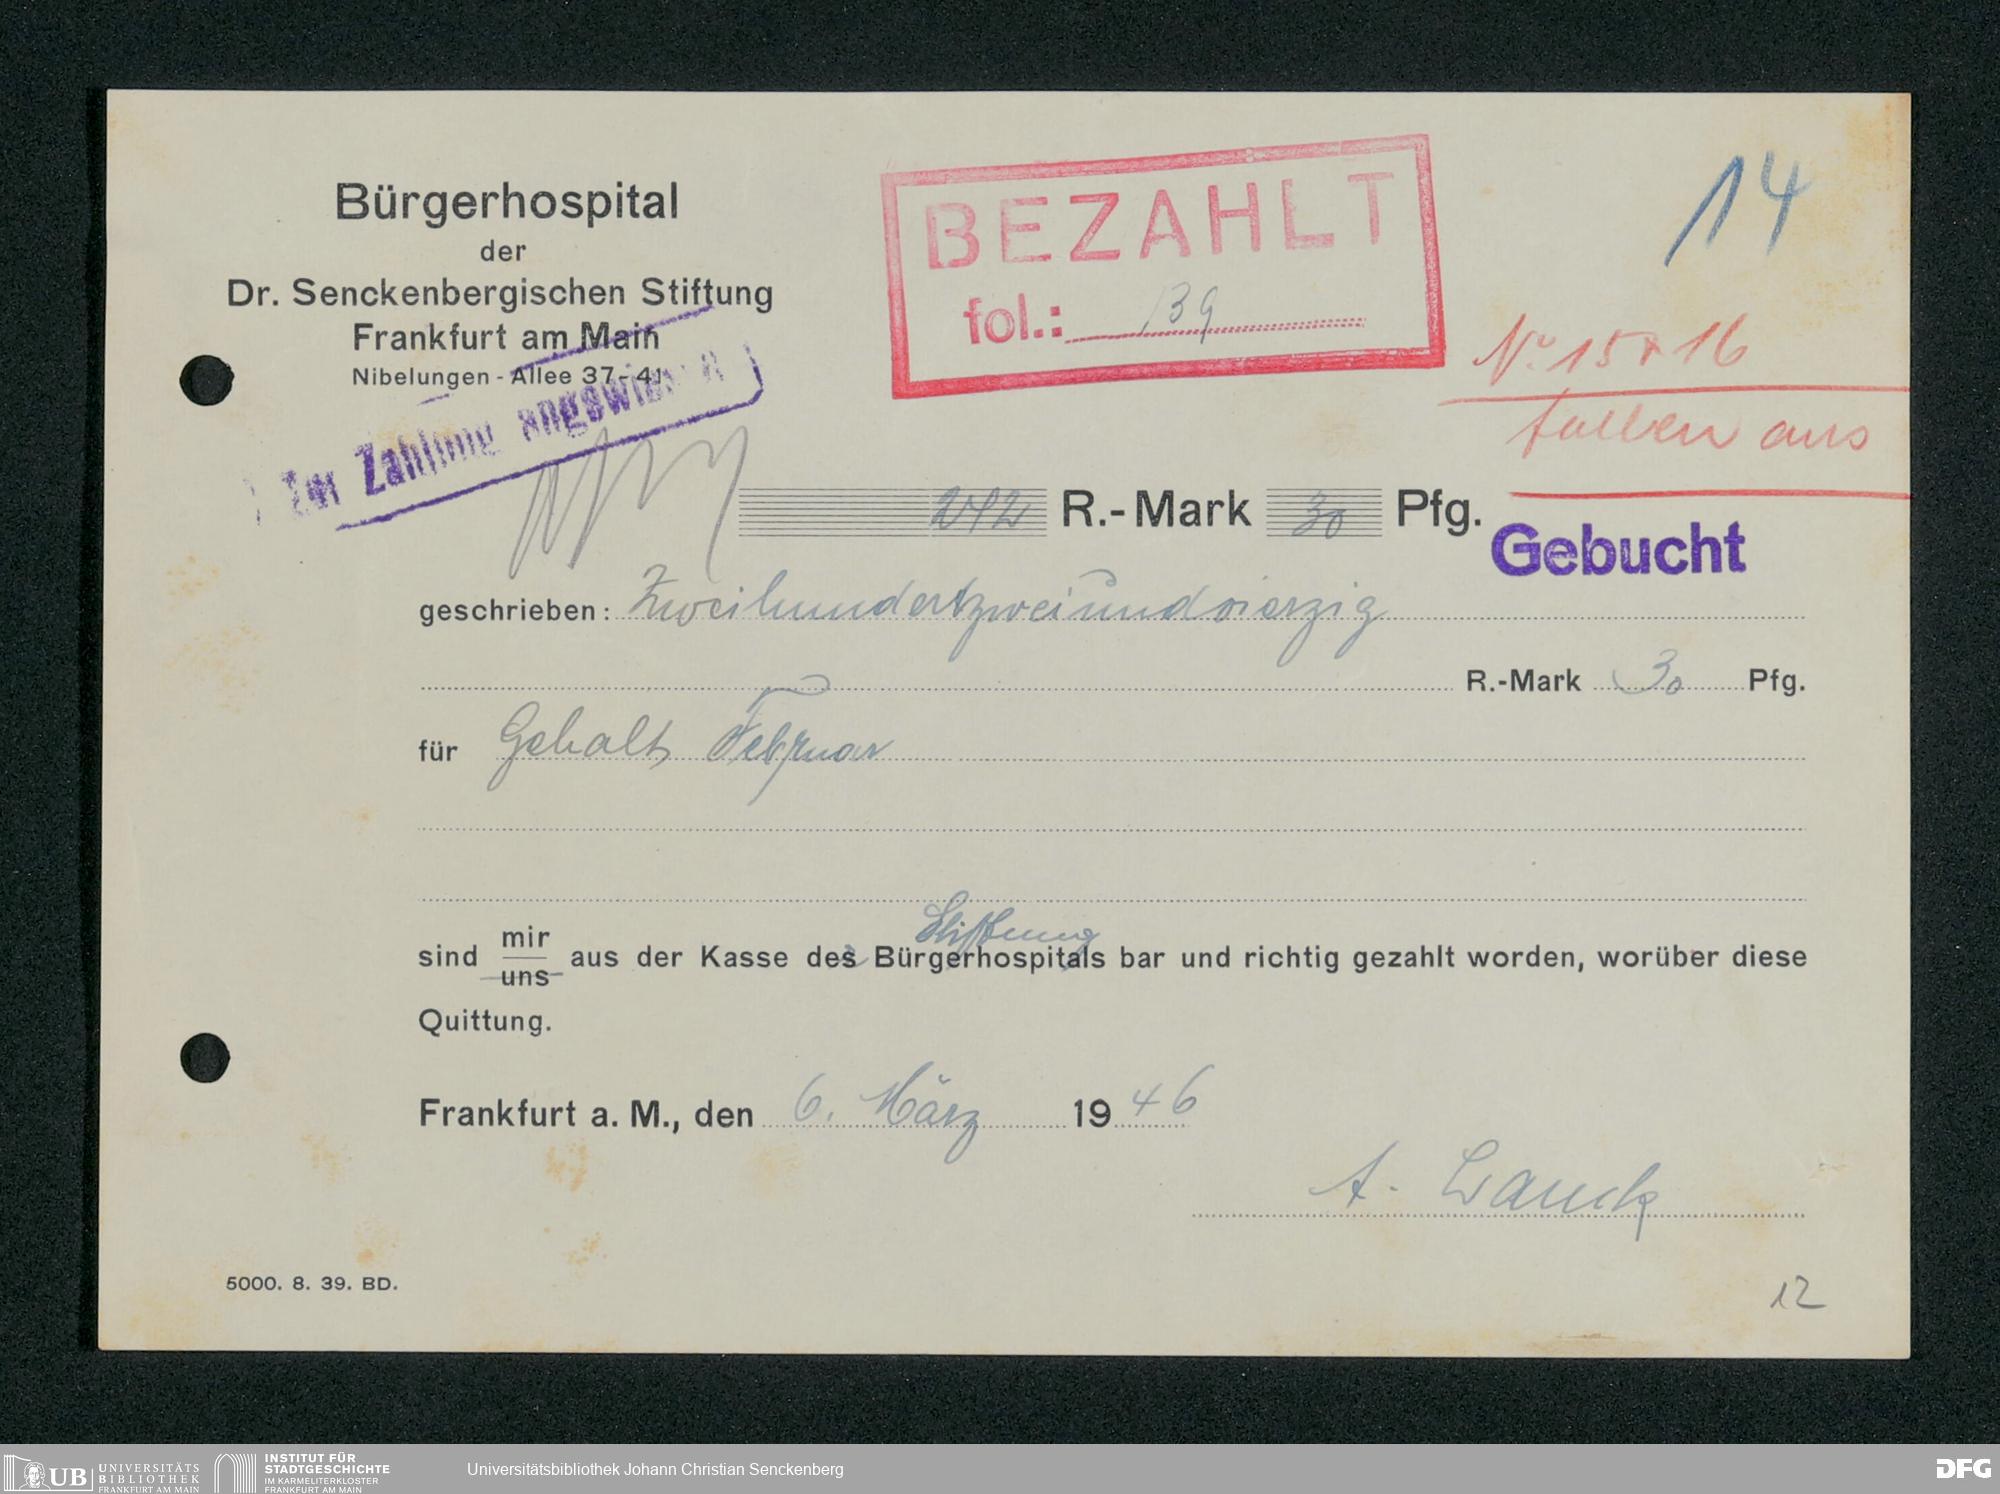 Bürgerhospital
der
Dr. Senckenbergischen Stiftung
Frankfurt am Main
Nibelungen-Allee 37-41
Zur Zahlung angewiesen
BEZAHLT
fol.: 139
14
No. 15 + 16
fallen aus
242 R.-Mark 30 Pfg.
Gebucht
geschrieben: Zweihundertzweiundvierzig
R.-Mark 30 Pfg.
für Gehalt Februar
Stiftung
sind mir aus der Kasse des Bürgerhospitals bar und richtig gezahlt worden, worüber diese
uns
Quittung.
Frankfurt a. M., den 6. März 1946
A. Lauck
5000. 8. 39. BD.
12
UB UNIVERSITÄTS
BIBLIOTHEK
FRANKFURT AM MAIN
INSTITUT FÜR
STADTGESCHICHTE
IM KARMELITERKLOSTER
FRANKFURT AM MAIN
Universitätsbibliothek Johann Christian Senckenberg
DFG